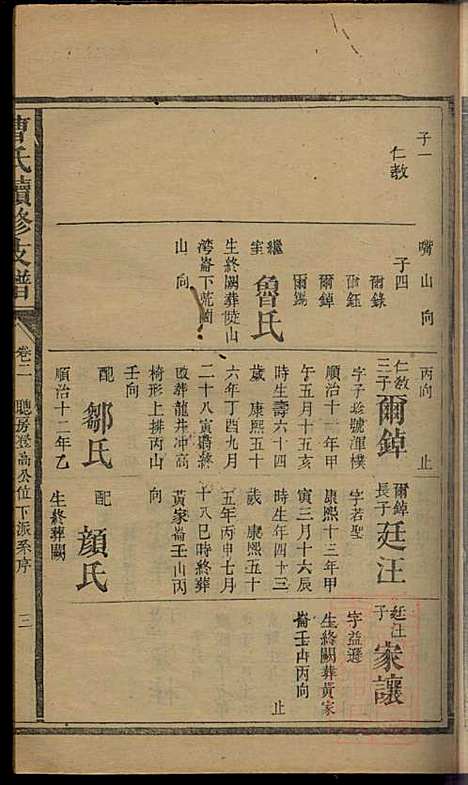 曹氏續修支譜
卷二
聽房登高公位下派系序
三
子一
仁教
嘴山向
子四
爾錄
爾鈺
爾錞
爾錫
繼室
魯氏
生終闕葬陡山
山向
丙向
止
仁教三子
爾錞
字子珍號渾樸
順治十一年甲
午五月十五亥
時生壽六十四
歲 康熙五十
六年丁酉九月
二十八寅時終
改葬龍井冲高
椅形上排丙山
壬向
配
鄒氏
順治十二年乙
爾錞長子
廷汪
字若聖
康熙十三年甲
寅三月十六辰
時生年四十三
歲 康熙五十
五年丙申七月
十八巳時終葬
黃家崙壬山丙
向
配
顏氏
生終葬闕
廷汪子
家讓
字益遜
生終闕葬黃家
崙壬山丙向
止